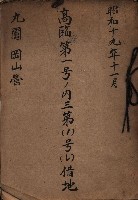 昭和十九年十一月
高臨第一号ノ内三第(イ)号(レ)借地
九團 岡山營